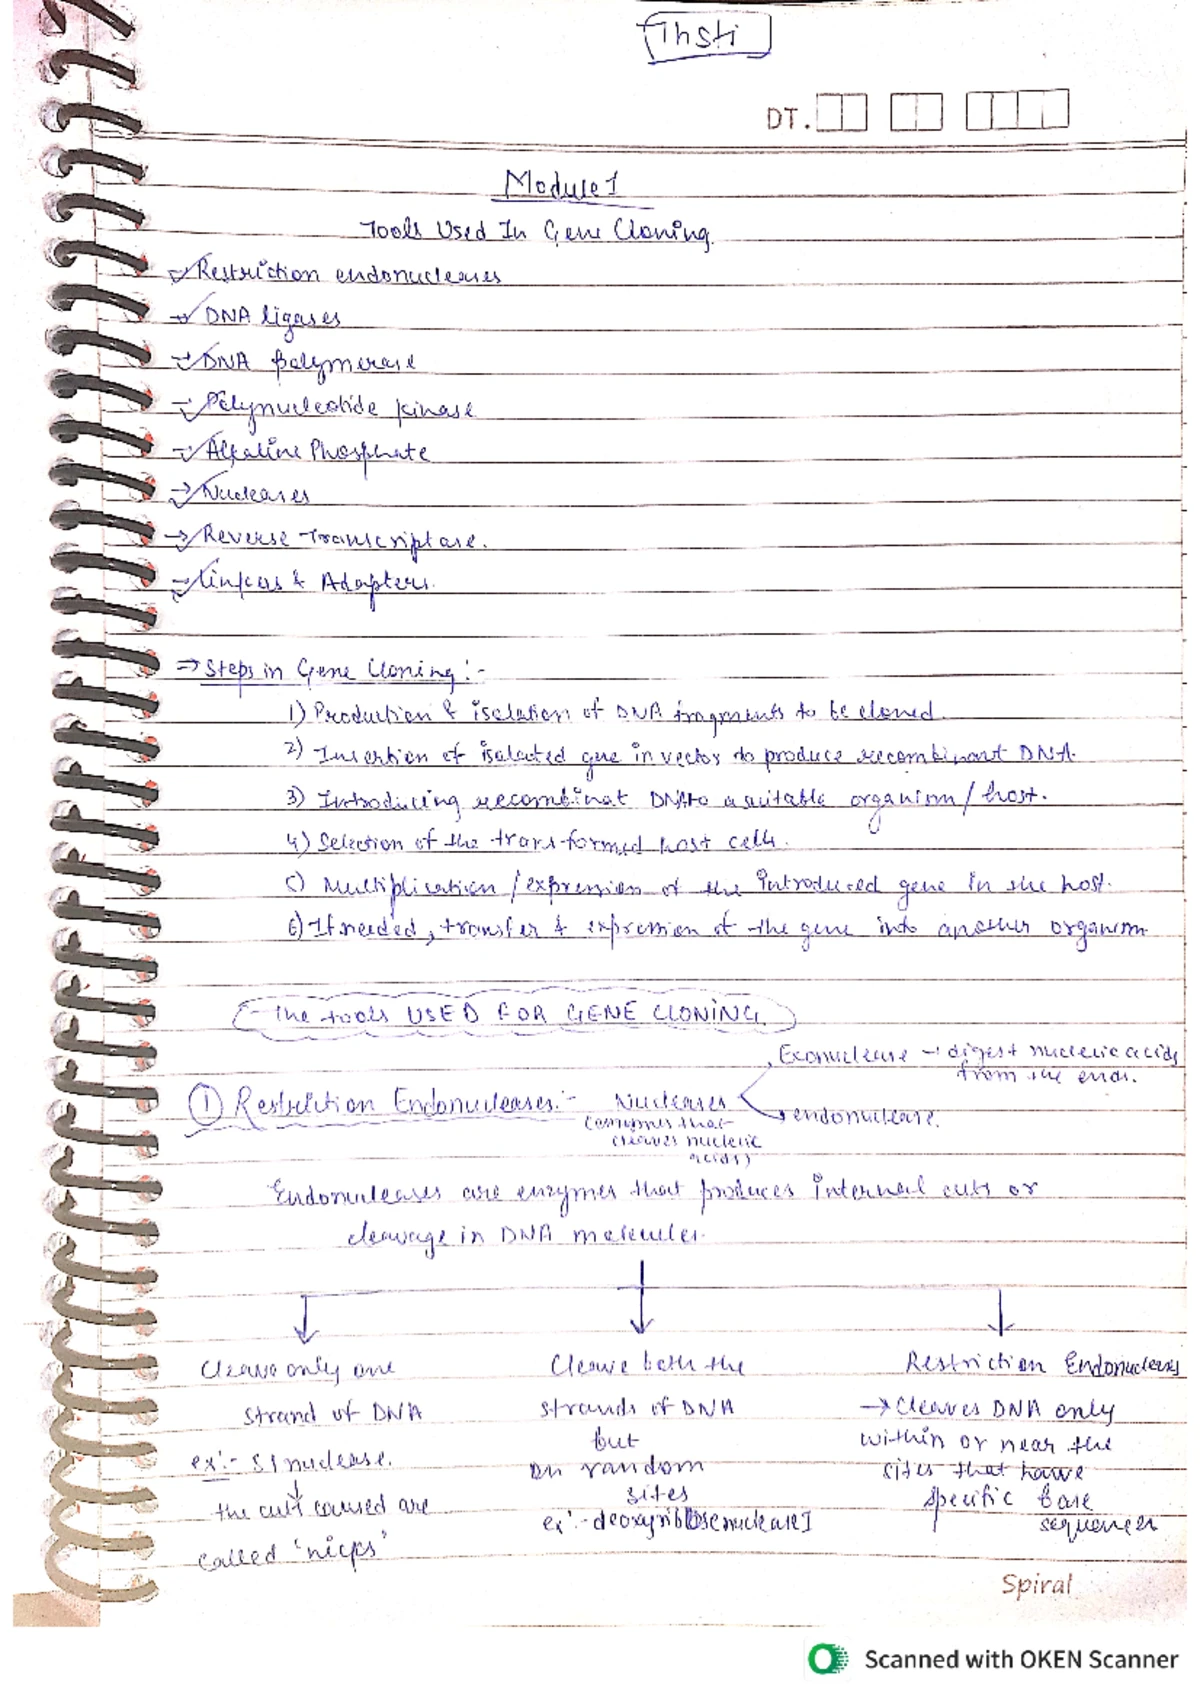 Thsti
DT.
Module 1
Tools Used In Gene Cloning.
→ Restriction endonucleases
→ DNA ligases
→ DNA polymerase
→ Polynucleotide kinase
→ Alkaline Phosphate
→ Nucleases
→ Reverse Transcriptase.
→ Linkers & Adapters.
⇒ Steps in Gene Cloning:-
1) Production & isolation of DNA fragments to be cloned.
2) Insertion of isolated gene in vector to produce recombinant DNA.
3) Introducing recombinat DNA to a suitable organism/host.
4) Selection of the transformed host cells.
5) Multiplication/expression of the introduced gene in the host.
6) If needed, transfer & expression of the gene into another organism
The tools USED FOR GENE CLONING
Exonuclease → digest nucleic acids
from the ends.
① Restriction Endonucleases:- Nucleases
→ endonuclease.
(enzymes that
cleaves nucleic
acids)
Endonucleases are enzymes that produces internal cuts or
cleavage in DNA molecules.
Cleave only one
strand of DNA
ex:- S1 nuclease.
↓
the cuts caused are
called 'nicks'
Cleave both the
strands of DNA
but
on random
sites
ex:- deoxyribosenuclease I
Restriction Endonucleases
→ Cleaves DNA only
within or near the
sites that have
specific base
sequences
Spiral
Scanned with OKEN Scanner